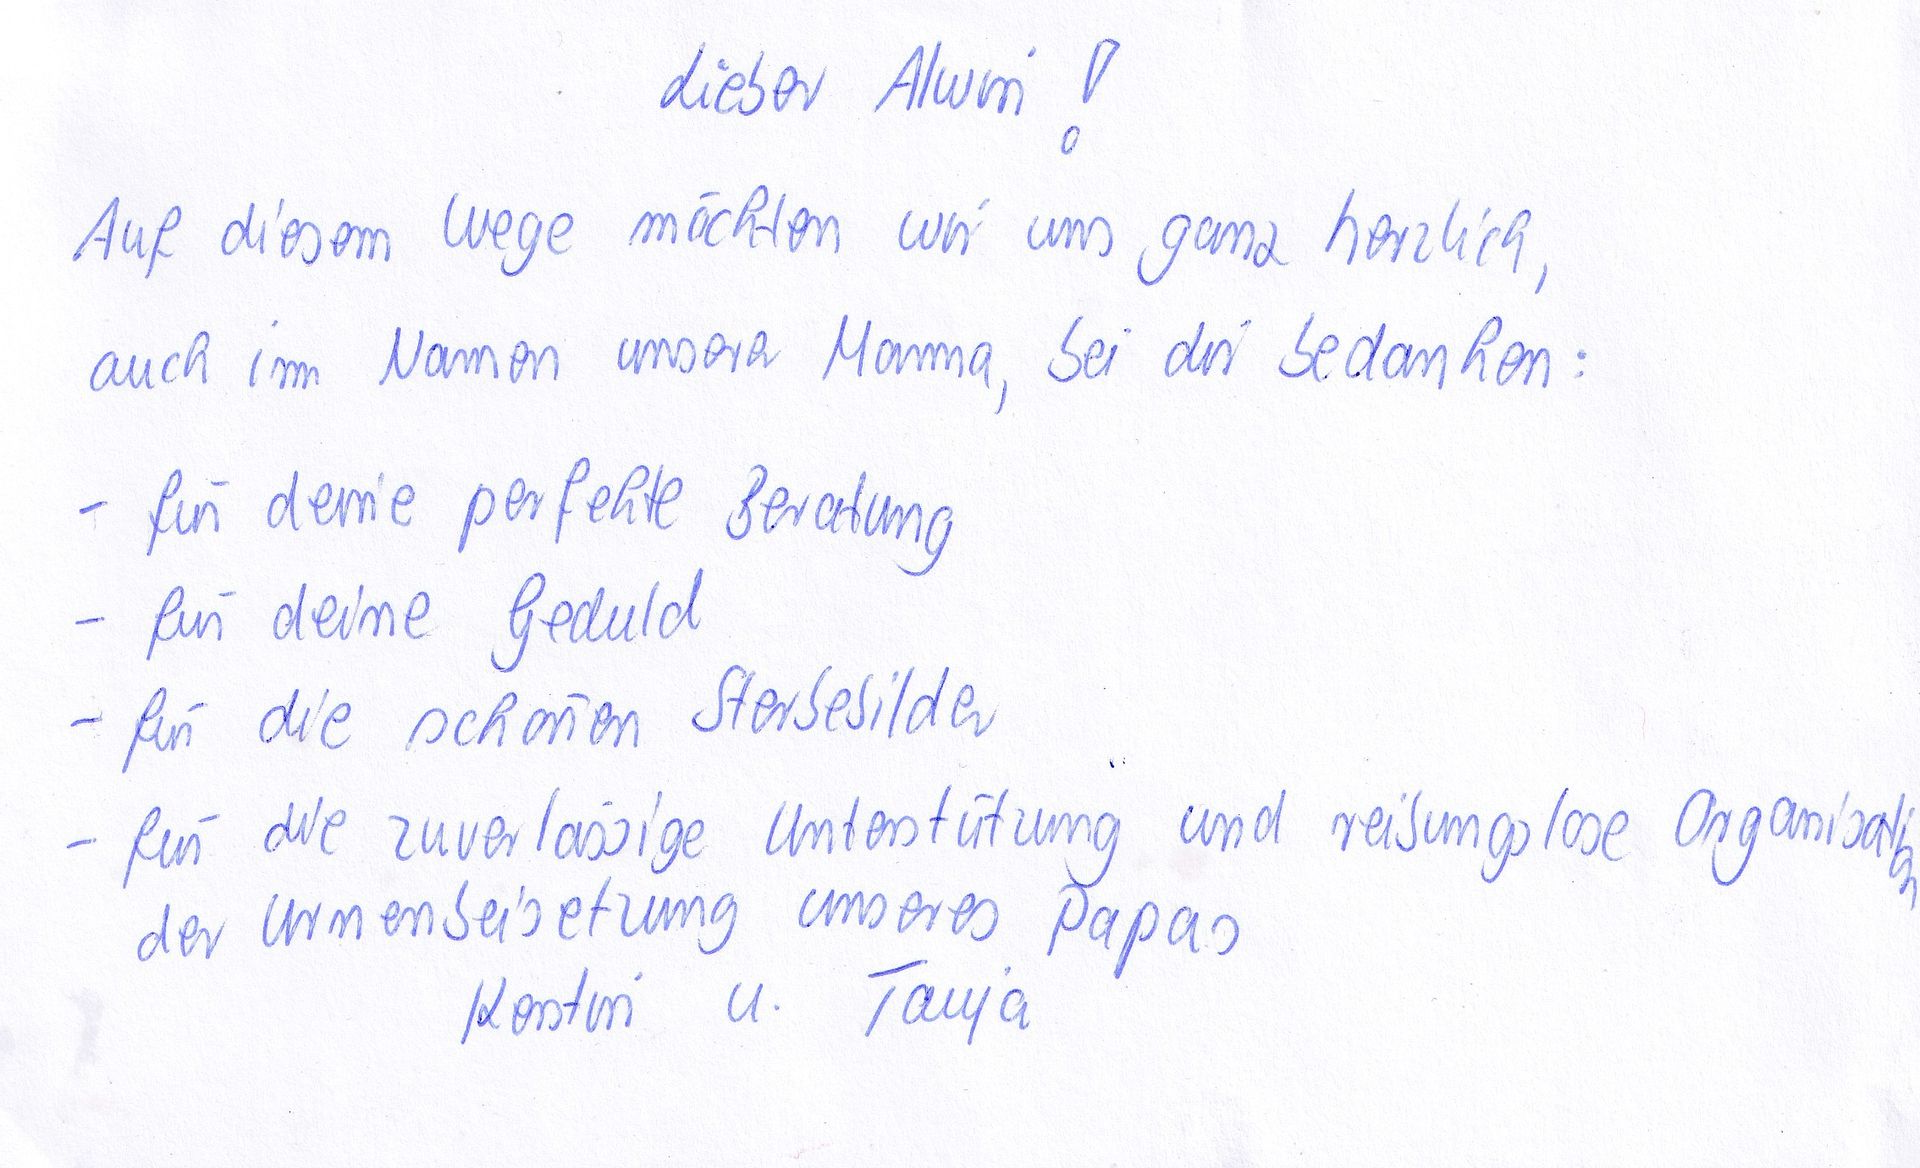 Lieber Alwin!
Auf diesem Wege möchten wir uns ganz herzlich,
auch im Namen unserer Mama, bei dir bedanken:
- für deine perfekte Beratung
- für deine Geduld
- für die schönen Sterbebilder
- für die zuverlässige Unterstützung und reibungslose Organisation
der Urnenbeisetzung unseres Papas
Kerstin u. Tanja